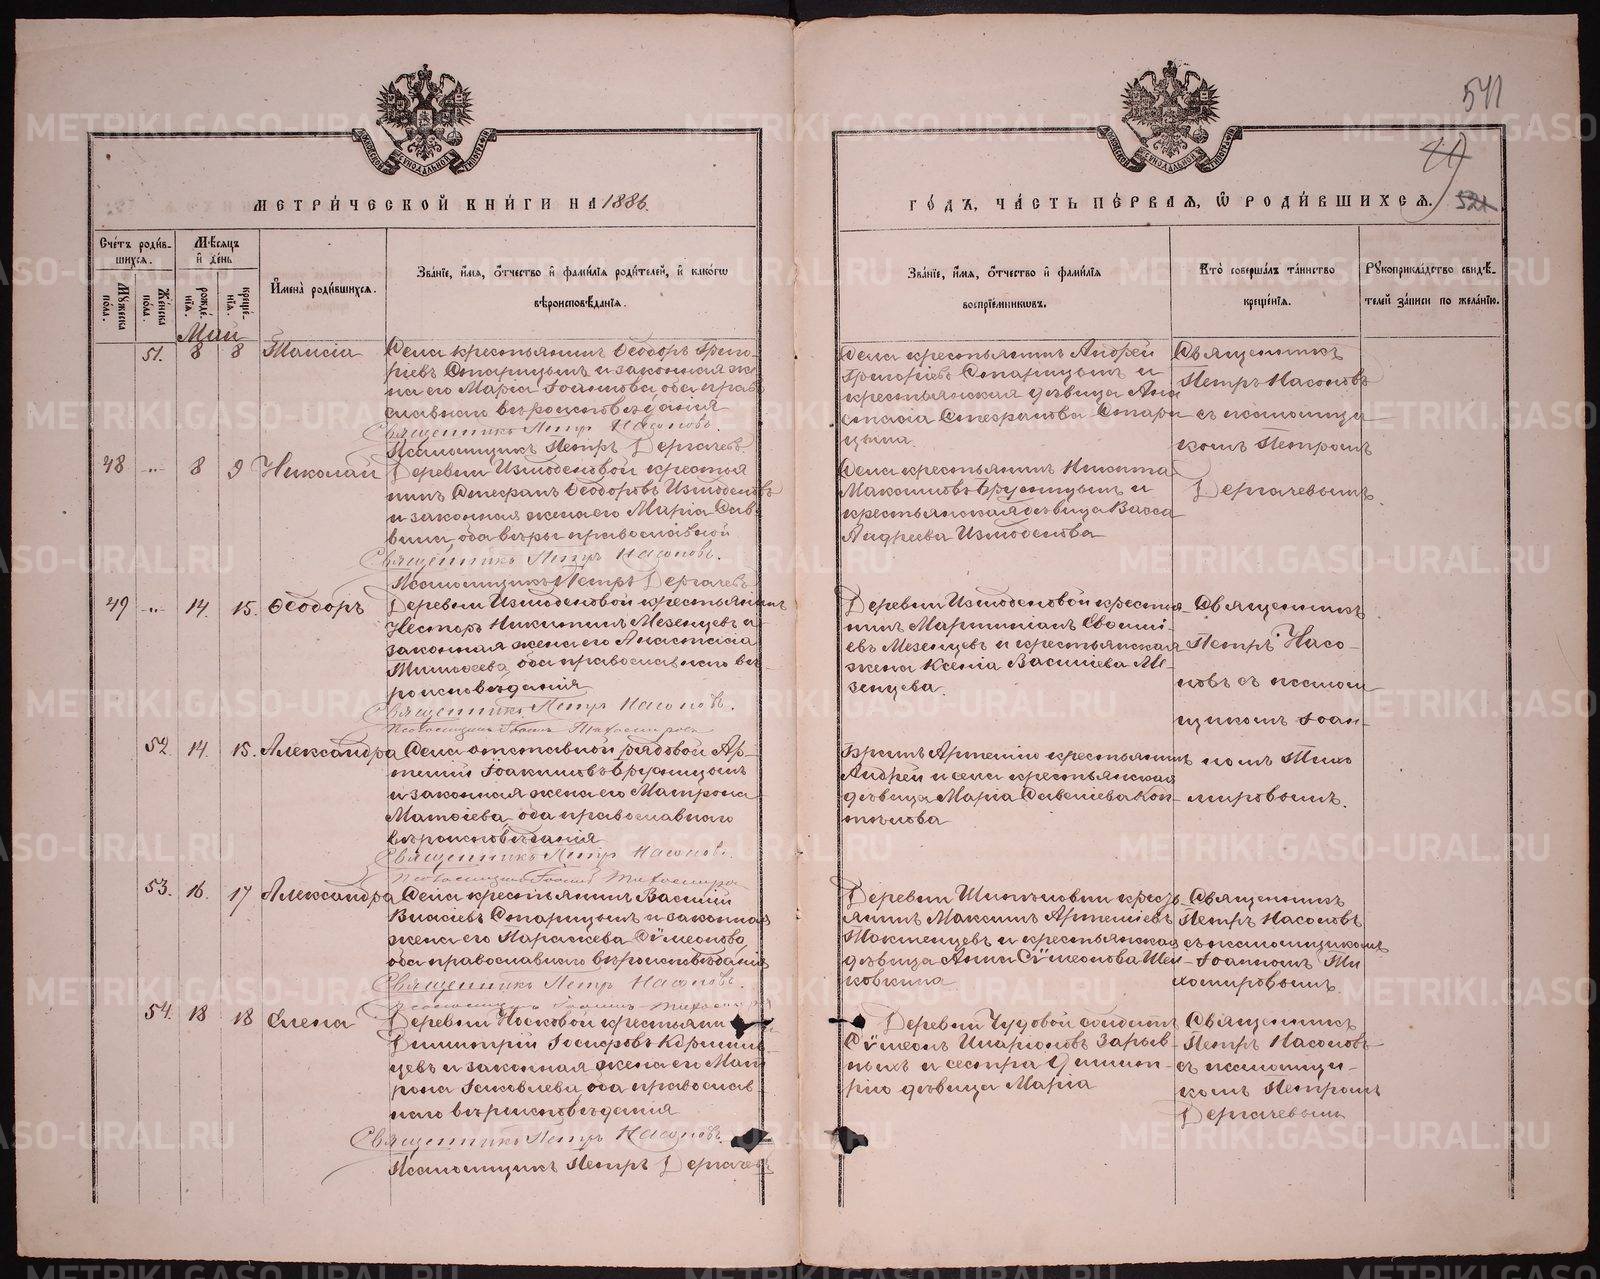 541
МЕТРИ́ЧЕСКОЙ КНИ́ГИ НА 1886.
ГО́ДЪ, ЧА́СТЬ ПЕ́РВАЯ, Ѡ РОДИ́ВШИХСЯ.
521
Сче́тъ роди́в-
шихся.
Мѣ́сяцъ
и҆ де́нь
Му́жеска по́ла.
Же́нска по́ла.
рожде́нїѧ.
креще́нїѧ.
И҆мена̀ роди́вшихся.
Зва́нїе, и҆́мя, ѻ҆́тчество и҆ фами́лїя роди́телей, и҆ како́гѡ
вѣроисповѣ́данїя.
Зва́нїе, и҆́мя, ѻ҆́тчество и҆ фами́лїя
воспрїе́мниковъ.
Кто̀ соверша́лъ та́инство
креще́нїя.
Рꙋкоприкла́дство свидѣ́-
телей за́писи по жела́нїю.
Май
51. 8 8 Таисія
Села крестьянинъ Ѳеодоръ Григо-
ріевъ Старицынъ и законная же
на его Марія Іоаннова оба прав
славнаго вѣроисповѣданія
Священникъ Петръ Насоновъ.
Псаломщикъ Петръ Дергачевъ.
Села крестьянинъ Андрей
Григоріевъ Старицынъ и
крестьянская дѣвица Ана
стасія Стефанова Стари
цына.
Священникъ
Петръ Насоновъ
съ псаломщи
комъ Петромъ
Дергачевымъ.
48 -"- 8 9 Николай
Деревни Измоденовой крестья
нинъ Стефанъ Ѳеодоровъ Измоденовъ
и законная жена его Марія Сав
вина, оба вѣры православной
Священникъ Петръ Насоновъ.
Псаломщикъ Петръ Дергачевъ
Села крестьянинъ Никита
Максимовъ Брусницынъ и
крестьянская дѣвица Васса
Андреева Измоденова
49 -"- 14. 15. Ѳеодоръ
Деревни Измоденовой крестьянинъ
Несторъ Никитинъ Мезенцевъ и
законная жена его Анастасія
Тимоѳеева, оба православнаго вѣ-
роисповѣданія
Священникъ Петръ Насоновъ.
Псаломщикъ Іоаннъ Тихомировъ
Деревни Измоденовой крестья
нинъ Мартиніанъ
евъ Мезенцевъ и крестьянская
жена Ксенія Василіева Ме-
зенцева.
Священникъ
Петръ Насо-
новъ съ псалом
щикомъ Іоан-
номъ Тихо
мировымъ.
52. 14. 15. Александра
Села отставной рядовой Ар-
темій Іоакимовъ Брусницынъ
и законная жена его Матрона
Матѳіева, оба православнаго
вѣроисповѣданія
Священникъ Петръ Насоновъ.
Псаломщикъ Іоаннъ Тихомировъ
Братъ Артемію крестьянинъ
Андрей и села крестьянская
дѣвица Марія Савеліева Коп-
тѣлова
53. 16. 17 Александра
Села крестьянинъ Василій
Власіевъ Старицынъ и законная
жена его Параскева Сѵмеонова,
оба православнаго вѣроисповѣданія
Священникъ Петръ Насоновъ.
Псаломщикъ Іоаннъ Тихомировъ
крестья
янинъ Максимъ Артеміевъ
и крестьянская
дѣвица Анна Сѵмеонова Шел
ковкина
Священникъ
Петръ Насоновъ
съ псаломщикомъ
Іоанномъ Ти
хомировымъ.
54. 18 18 Елена
Деревни Носковой крестьянинъ
Димитрій Іосифовъ
цевъ и законная жена его Мат
рона Іаковлева, оба православ
наго вѣроисповѣданія
Священникъ Петръ Насоновъ.
Псаломщикъ Петръ Дергачевъ
Деревни Чудовой солдатъ
Сѵмеонъ Иларіоновъ Зарыв-
ныхъ и сестра Димит-
рію дѣвица Марія
Священникъ
Петръ Насоновъ
съ псаломщи-
комъ Петромъ
Дергачевымъ
METRIKI.GASO-URAL.RU